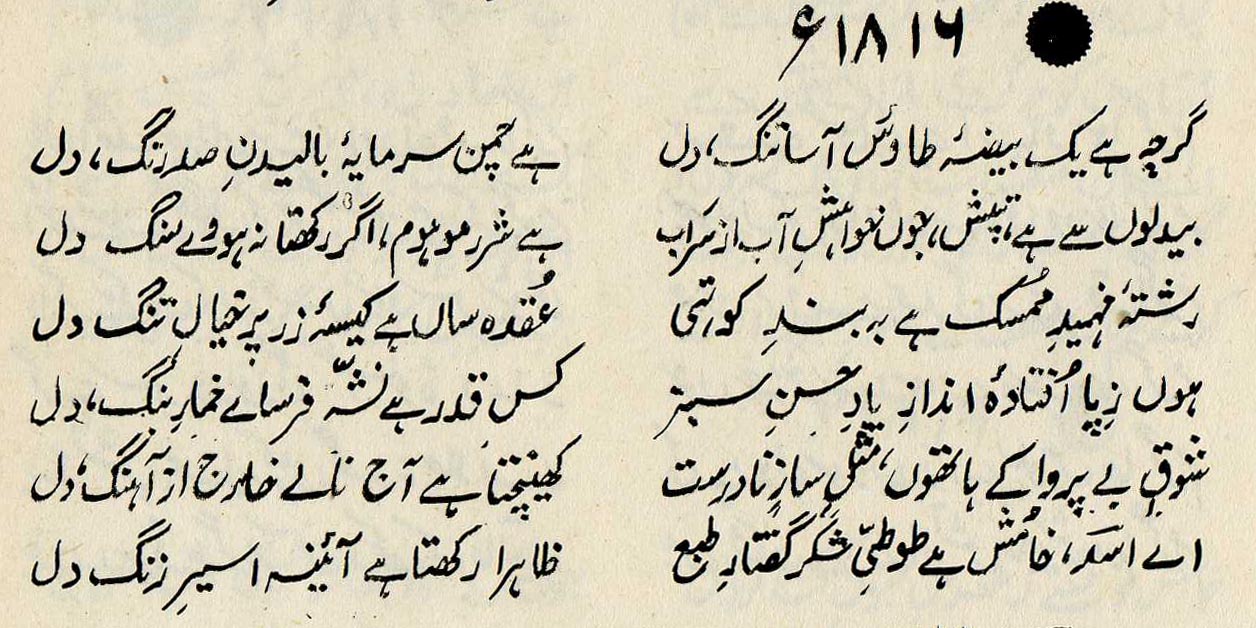 ۱۸۱۶ء
گرچہ ہے یک بیضۂ طاؤس آسا تنگ، دل
ہے چمن سرمایۂ بالیدنِ صد رنگ، دل
بیدلوں سے ہے، تپش، جوں خواہشِ آب از سراب
ہے شررِ موہوم، اگر رکھتا نہ ہووے سنگ دل
رشتۂ فہمیدِ مُمسک ہے بہ بندِ کوتہی
عُقدہ ساں ہے کیسۂ زر پر خیالِ تنگ دل
ہوں زِپا اُفتادۂ اندازِ یادِ حسنِ سبز
کس قدر ہے نشّہ فرسائے خمارِ بنگ، دل
شوقِ بے پروا کے ہاتھوں، مثلِ سازِ نادرست
کھینچتا ہے آج نالے خارج از آہنگ، دل
اے اسد، خامُش ہے طوطیِ شکّر گفتارِ طبع
ظاہرا رکھتا ہے آئینہ اسیرِ زنگ دل